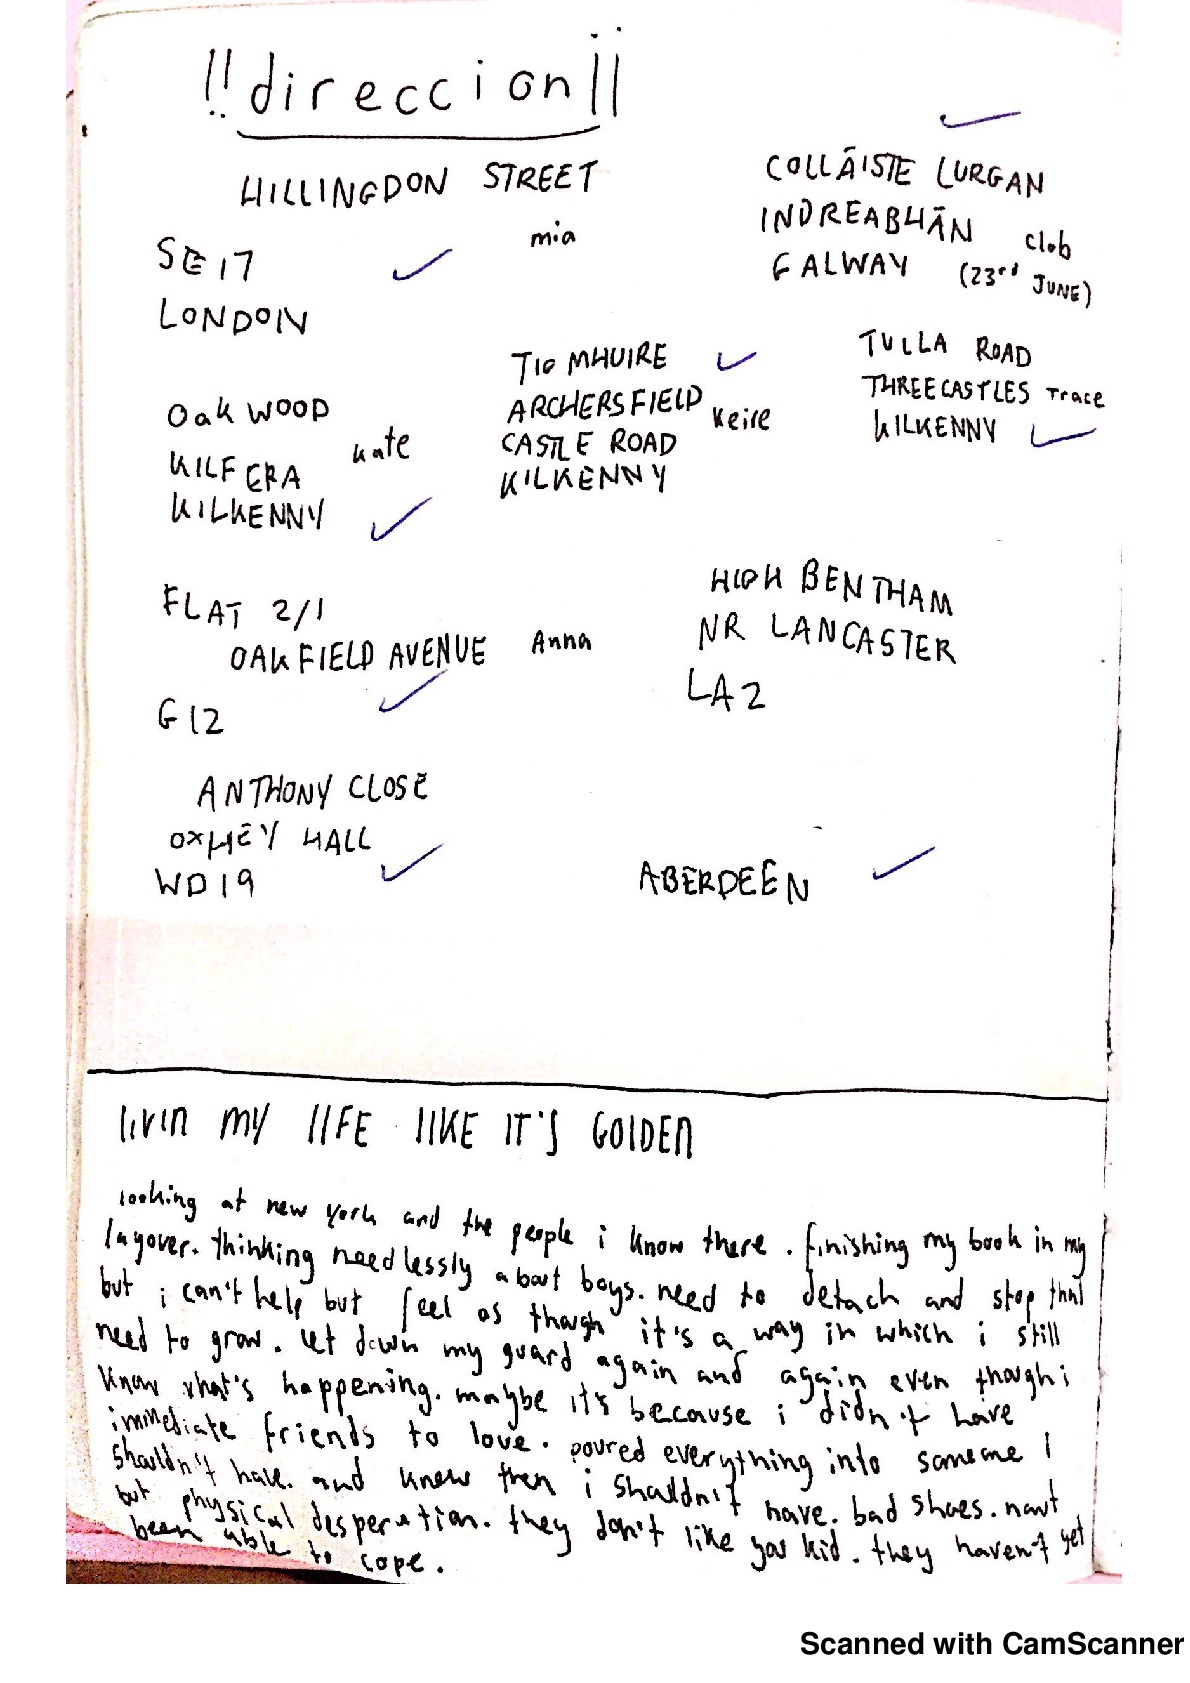 !!direccion!!
HILLINGDON STREET
mia
SE17
LONDON
COLLÁISTE LURGAN
INDREABHÁN
clob
GALWAY (23rd JUNE)
OakWOOD
kate
KILFERA
KILKENNY
TIG MHUIRE
ARCHERSFIELD
keire
CASTLE ROAD
KILKENNY
TULLA ROAD
THREECASTLES Trace
KILKENNY
FLAT 2/1
OAKFIELD AVENUE Anna
G12
HIGH BENTHAM
NR LANCASTER
LA2
ANTHONY CLOSE
OXHEY HALL
WD19
ABERDEEN
livin MY lIFE lIKE IT'S GOlDEn
looking at new york and the people i know there. finishing my book in my
layover. thinking needlessly about boys. need to detach and stop that
but i can't help but feel as though it's a way in which i still
need to grow. let down my guard again and again even though i
know what's happening. maybe it's because i didn't have
immediate friends to love. poured everything into someone I
shouldn't have. and knew then i shouldn't have. bad shoes. nowt
but physical desperation. they don't like you kid. they haven't yet
been able to cope.
Scanned with CamScanner